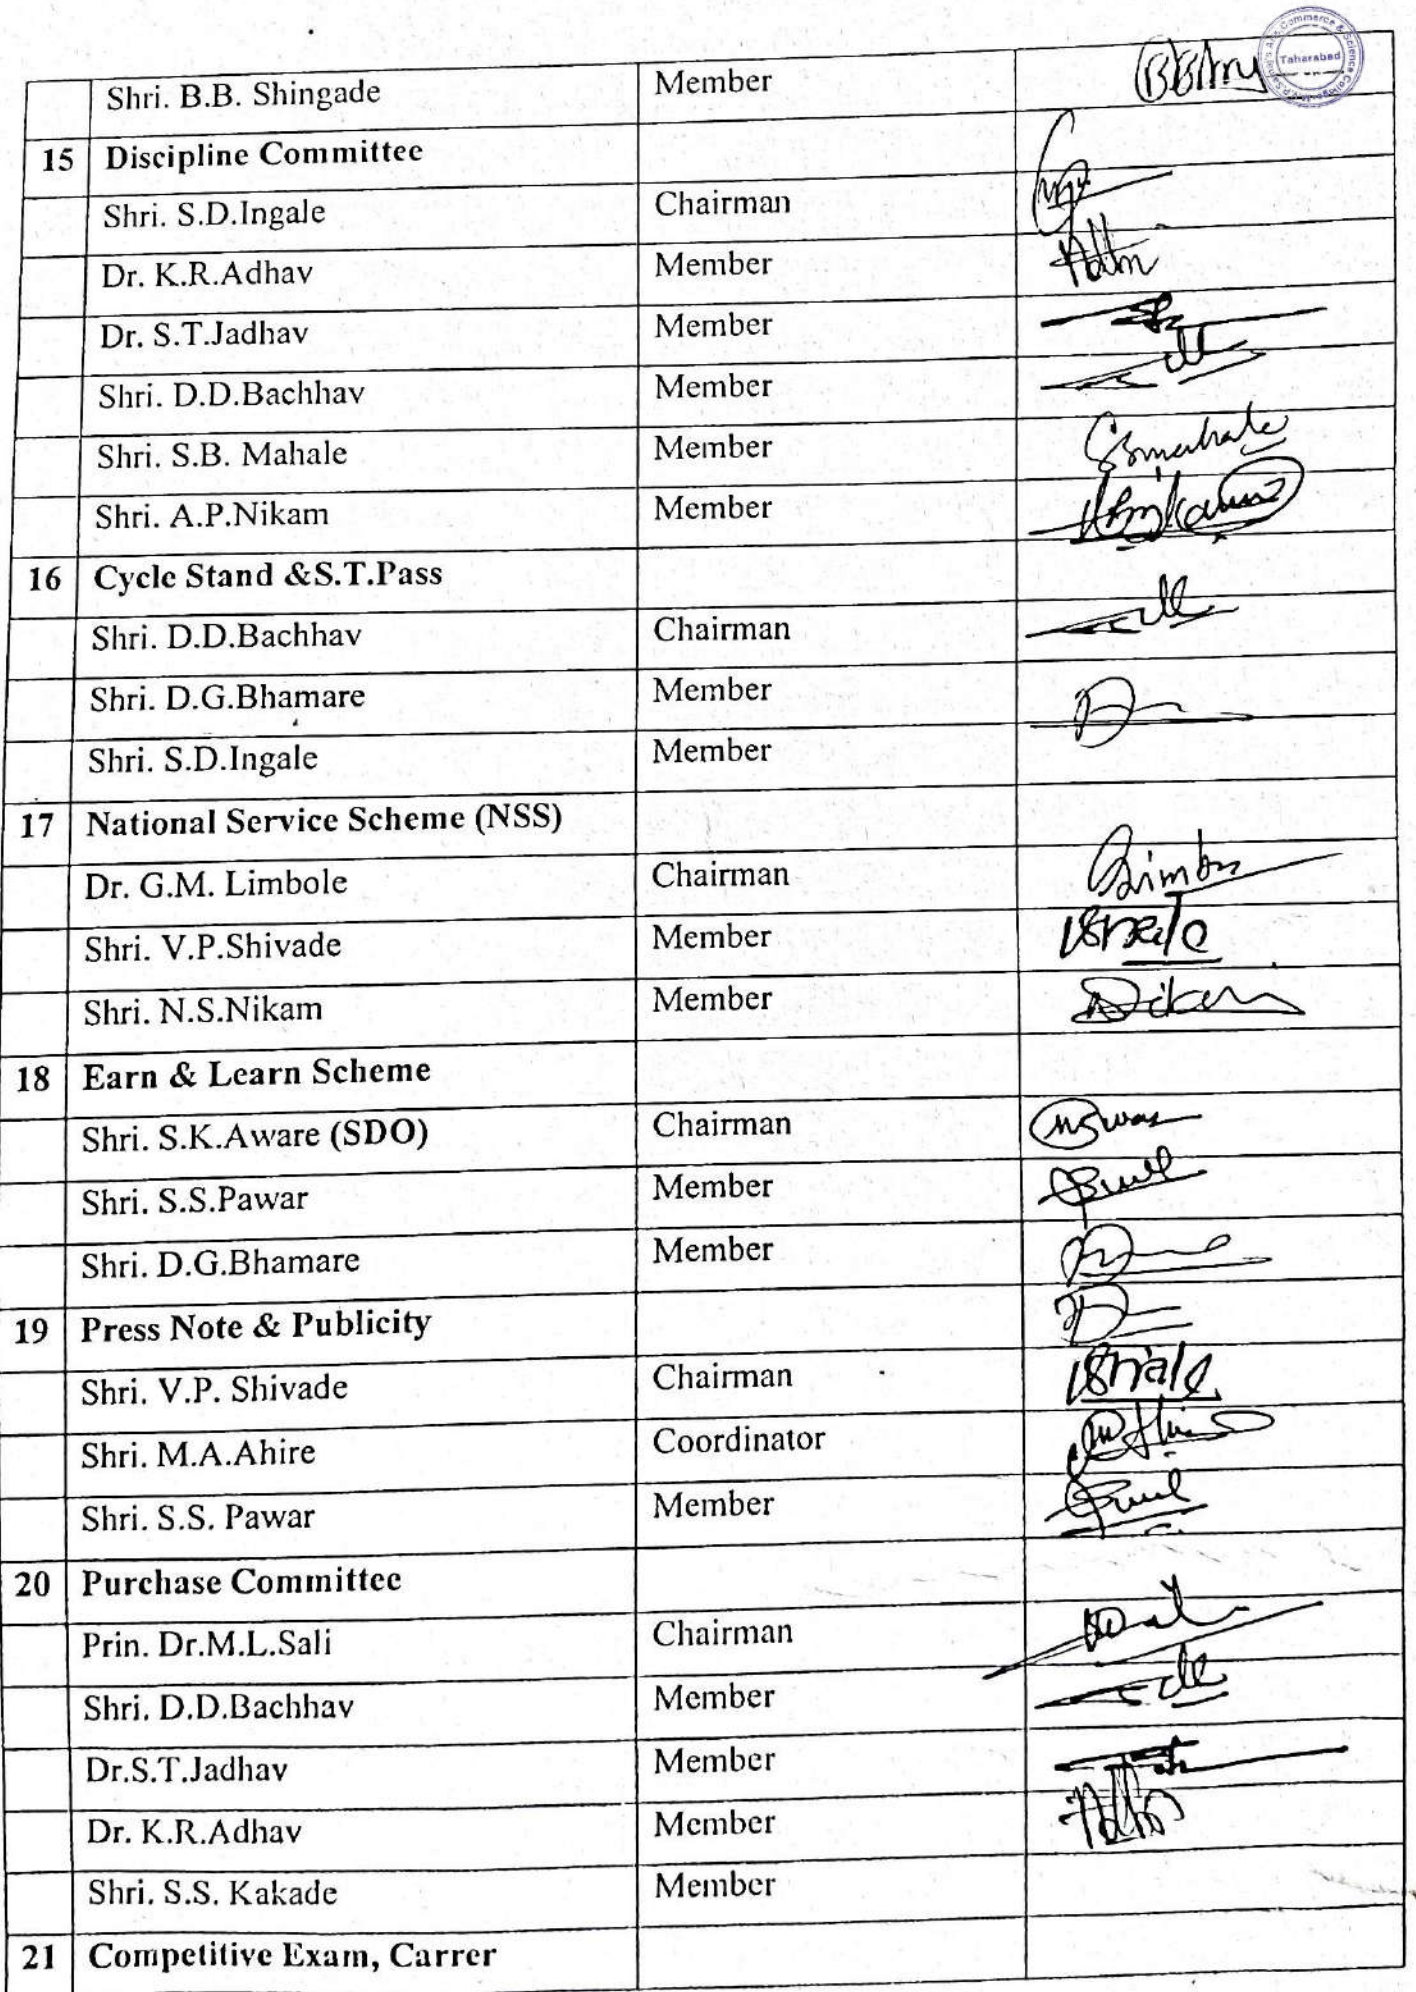 Commerce &
Taharabad
Shri. B.B. Shingade Member
15 Discipline Committee
Shri. S.D.Ingale Chairman
Dr. K.R.Adhav Member
Dr. S.T.Jadhav Member
Shri. D.D.Bachhav Member
Shri. S.B. Mahale Member
Shri. A.P.Nikam Member
16 Cycle Stand &S.T.Pass
Shri. D.D.Bachhav Chairman
Shri. D.G.Bhamare Member
Shri. S.D.Ingale Member
17 National Service Scheme (NSS)
Dr. G.M. Limbole Chairman
Shri. V.P.Shivade Member
Shri. N.S.Nikam Member
18 Earn & Learn Scheme
Shri. S.K.Aware (SDO) Chairman
Shri. S.S.Pawar Member
Shri. D.G.Bhamare Member
19 Press Note & Publicity
Shri. V.P. Shivade Chairman
Shri. M.A.Ahire Coordinator
Shri. S.S. Pawar Member
20 Purchase Committee
Prin. Dr.M.L.Sali Chairman
Shri. D.D.Bachhav Member
Dr.S.T.Jadhav Member
Dr. K.R.Adhav Member
Shri. S.S. Kakade Member
21 Competitive Exam, Carrer